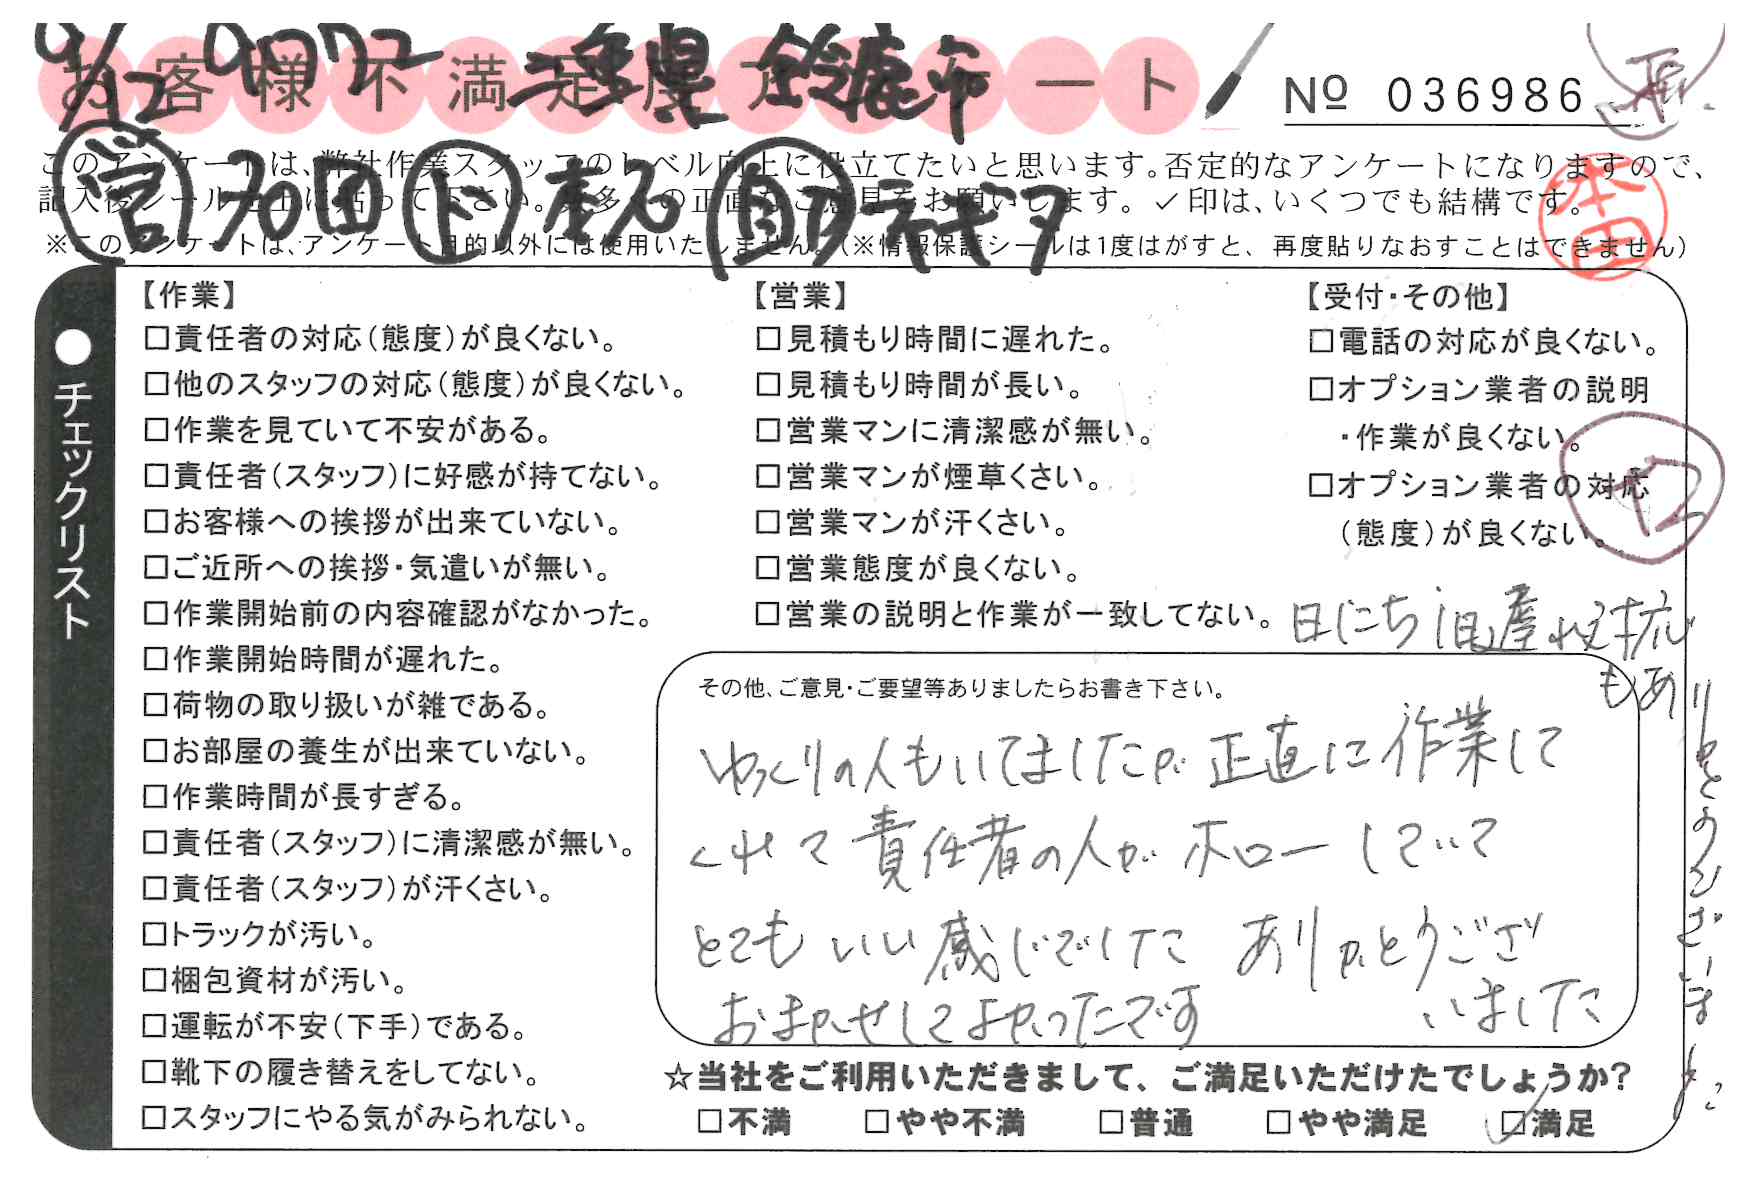 お客様不満足度アンケート
4/12 三重県 鈴鹿市
№ 036986
このアンケートは、弊社作業スタッフのレベル向上に役立てたいと思います。否定的なアンケートになりますので、
記入後シールを上に貼って下さい。数多くの正直なご意見をお願いします。✓印は、いくつでも結構です。
※このアンケートは、アンケート目的以外には使用いたしません。(※情報保護シールは1度はがすと、再度貼りなおすことはできません)
営
本田
●チェックリスト
【作業】
□責任者の対応(態度)が良くない。
□他のスタッフの対応(態度)が良くない。
□作業を見ていて不安がある。
□責任者(スタッフ)に好感が持てない。
□お客様への挨拶が出来ていない。
□ご近所への挨拶・気遣いが無い。
□作業開始前の内容確認がなかった。
□作業開始時間が遅れた。
□荷物の取り扱いが雑である。
□お部屋の養生が出来ていない。
□作業時間が長すぎる。
□責任者(スタッフ)に清潔感が無い。
□責任者(スタッフ)が汗くさい。
□トラックが汚い。
□梱包資材が汚い。
□運転が不安(下手)である。
□靴下の履き替えをしてない。
□スタッフにやる気がみられない。
【営業】
□見積もり時間に遅れた。
□見積もり時間が長い。
□営業マンに清潔感が無い。
□営業マンが煙草くさい。
□営業マンが汗くさい。
□営業態度が良くない。
□営業の説明と作業が一致してない。
【受付・その他】
□電話の対応が良くない。
□オプション業者の説明
・作業が良くない。
□オプション業者の対応
(態度)が良くない。
日にち
もありがとうございました
その他、ご意見・ご要望等ありましたらお書き下さい。
ゆっくりの人もいてましたが 正直に作業して
くれて 責任者の人が ホローしていて
とても いい感じでした ありがとうござ
いました
おまかせしてよかったです
☆当社をご利用いただきまして、ご満足いただけたでしょうか?
□不満 □やや不満 □普通 □やや満足 ☑満足